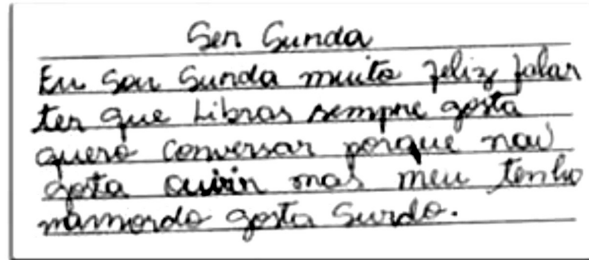 Ser Surda
Eu sou Surda muito feliz falar
ter que Libras sempre gosta
quero conversar porque nao
gosta ouvir mas meu tenho
namorado gosta Surdo.